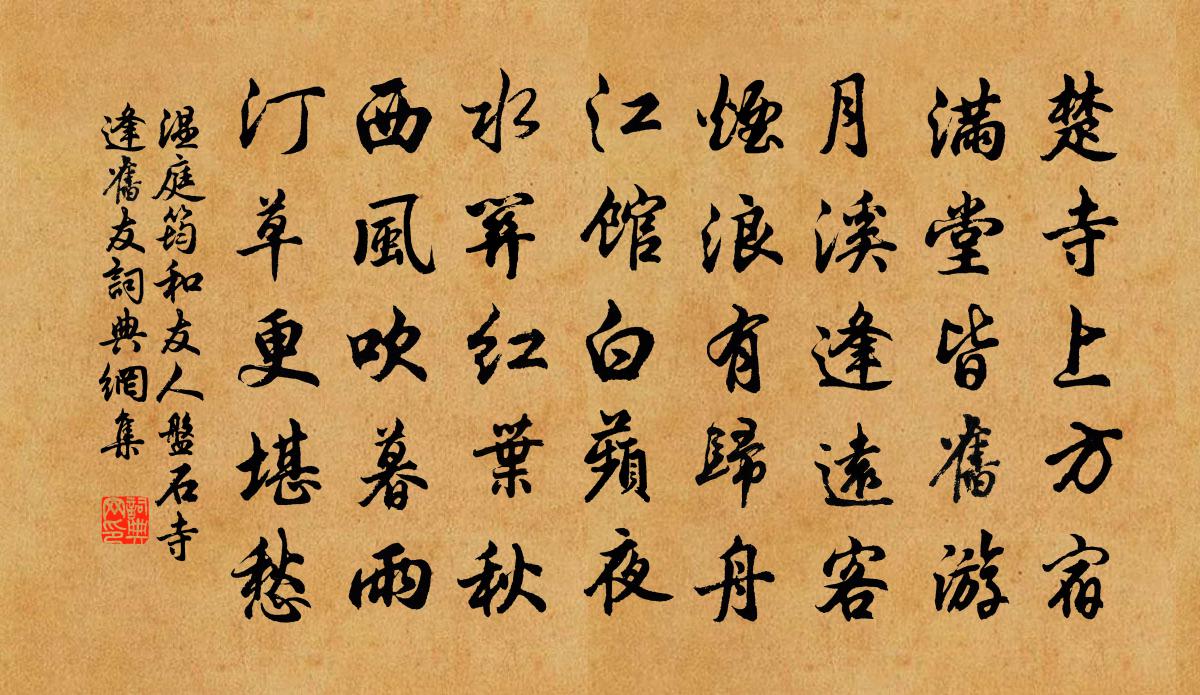 楚寺上方宿
滿堂皆舊游
月溪逢遠客
煙浪有歸舟
江館白蘋夜
水關紅葉秋
西風吹暮雨
汀草更堪愁
溫庭筠和友人盤石寺
逢舊友詞典網集
詞典網印